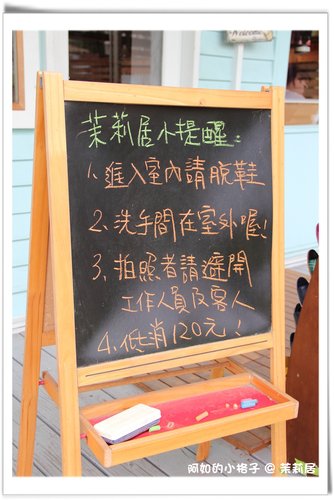 Welcome
茉莉居小提醒:
1. 進入室內請脫鞋
2. 洗手間在室外喔!
3. 拍照者請避開
工作人員及客人
4. 低消120元!
阿如的小格子 @ 茉莉居